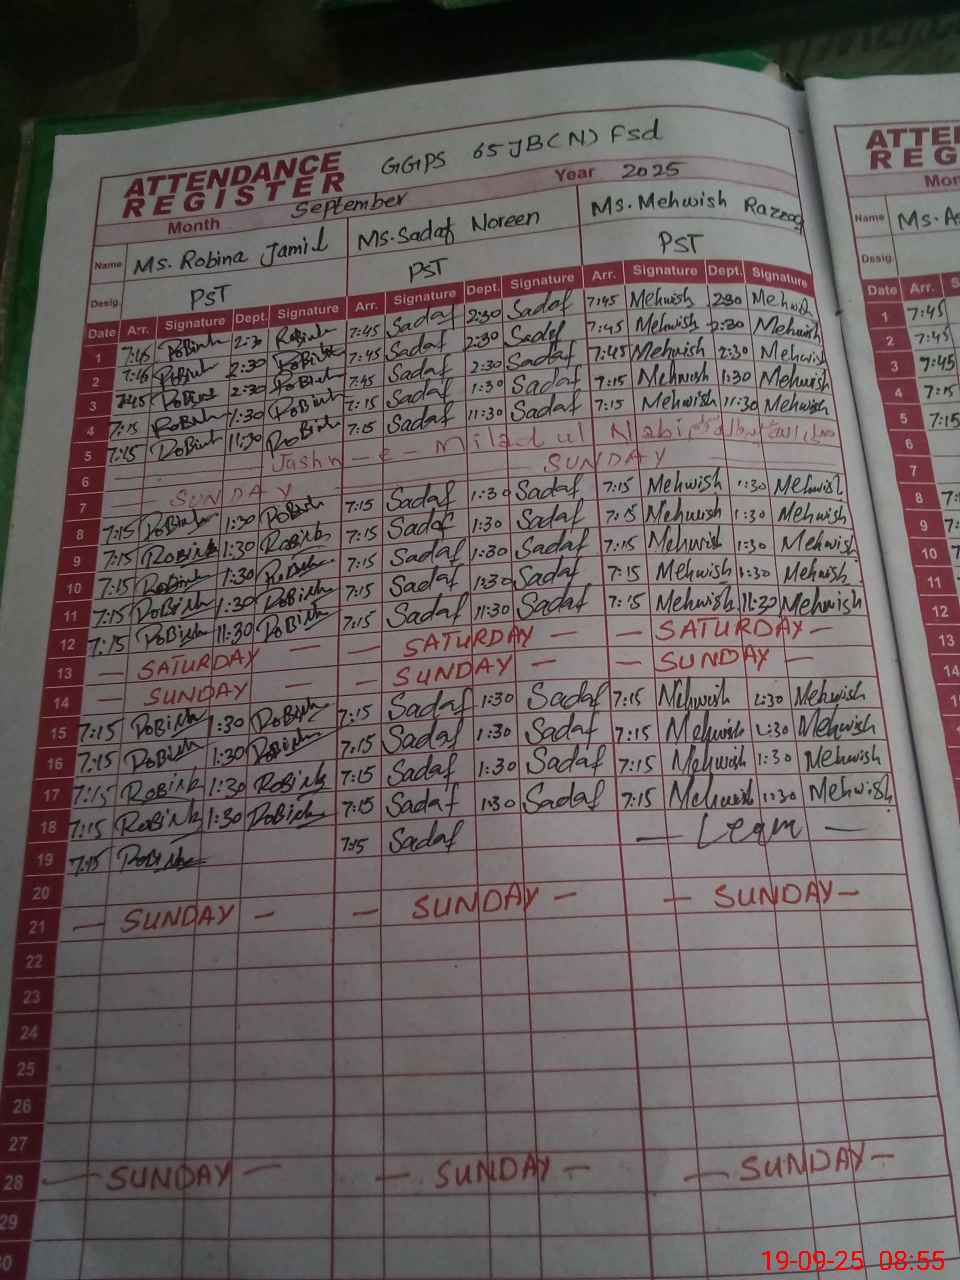 ATTENDANCE REGISTER GGPS 65 JB(N) Fsd
Month September Year 2025
Name Ms. Robina Jamil Ms. Sadaf Noreen Ms. Mehwish Razzaq
Desig. PST PST PST
Date Arr. Signature Dept. Signature Arr. Signature Dept. Signature Arr. Signature Dept. Signature
1 7:45 Robina 2:30 Robina 7:45 Sadaf 2:30 Sadaf 7:45 Mehwish 2:30 Mehwish
2 7:45 Robina 2:30 Robina 7:45 Sadaf 2:30 Sadaf 7:45 Mehwish 2:30 Mehwish
3 7:45 Robina 2:30 Robina 7:45 Sadaf 2:30 Sadaf 7:45 Mehwish 2:30 Mehwish
4 7:15 Robina 1:30 Robina 7:15 Sadaf 1:30 Sadaf 7:15 Mehwish 1:30 Mehwish
5 7:15 Robina 11:30 Robina 7:15 Sadaf 11:30 Sadaf 7:15 Mehwish 11:30 Mehwish
6 Jashn-e-Milad ul Nabi
7 SUNDAY SUNDAY
8 7:15 Robina 1:30 Robina 7:15 Sadaf 1:30 Sadaf 7:15 Mehwish 1:30 Mehwish
9 7:15 Robina 1:30 Robina 7:15 Sadaf 1:30 Sadaf 7:15 Mehwish 1:30 Mehwish
10 7:15 Robina 1:30 Robina 7:15 Sadaf 1:30 Sadaf 7:15 Mehwish 1:30 Mehwish
11 7:15 Robina 1:30 Robina 7:15 Sadaf 1:30 Sadaf 7:15 Mehwish 1:30 Mehwish
12 7:15 Robina 11:30 Robina 7:15 Sadaf 11:30 Sadaf 7:15 Mehwish 11:30 Mehwish
13 — SATURDAY — — SATURDAY — — SATURDAY —
14 — SUNDAY — — SUNDAY — — SUNDAY —
15 7:15 Robina 1:30 Robina 7:15 Sadaf 1:30 Sadaf 7:15 Mehwish 1:30 Mehwish
16 7:15 Robina 1:30 Robina 7:15 Sadaf 1:30 Sadaf 7:15 Mehwish 1:30 Mehwish
17 7:15 Robina 1:30 Robina 7:15 Sadaf 1:30 Sadaf 7:15 Mehwish 1:30 Mehwish
18 7:15 Robina 1:30 Robina 7:15 Sadaf 1:30 Sadaf 7:15 Mehwish 1:30 Mehwish
19 7:15 Robina 7:15 Sadaf
20
21 — SUNDAY — — SUNDAY — — SUNDAY —
22
23
24
25
26
27
28 — SUNDAY — — SUNDAY — — SUNDAY —
29
ATTE
REG
Mon
Name Ms.
Desig.
Date Arr. S
1 7:45
2 7:45
3 7:45
4 7:15
5 7:15
6
7
8
9
10
11
12
13
14
19-09-25 08:55